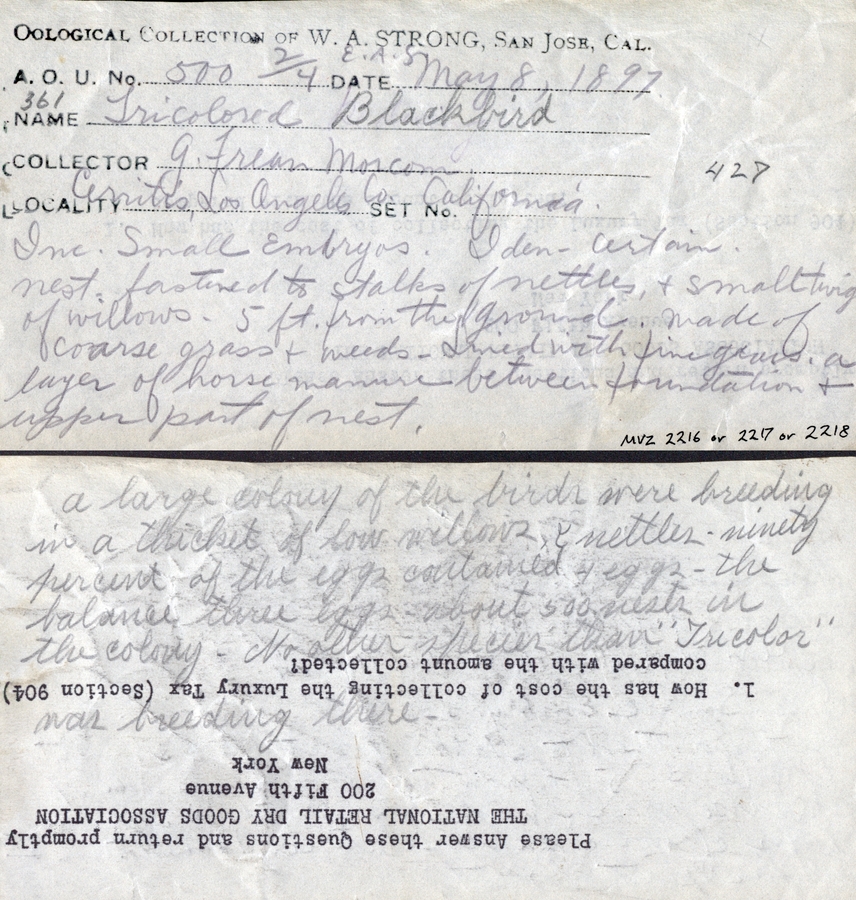 OOLOGICAL COLLECTION OF W. A. STRONG, SAN JOSE, CAL.
E.A.S.
A. O. U. No. 500 2/4 DATE May 8, 1897
361
NAME Tricolored Blackbird
COLLECTOR G. Frean Morcom
427
LOCALITY Cerritis, Los Angeles Co. California. SET No.
Inc. Small Embryos. Iden- Certain.
nest. fastened to stalks of nettles, & small twigs
of willows - 5 ft. from the ground. made of
coarse grass & weeds - lined with fine grass. a
layer of horse manure between foundation &
upper part of nest.
MVZ 2216 or 2217 or 2218
a large colony of the birds were breeding
in a thicket of low willows, & nettles - ninety
percent of the eggs contained 4 eggs - the
balance three eggs - about 500 nests in
the colony - No other species than "Tricolor"
was breeding there -
Please Answer these Questions and return promptly
THE NATIONAL RETAIL DRY GOODS ASSOCIATION
200 Fifth Avenue
New York
1. How has the cost of collecting the Luxury Tax (Section 904)
compared with the amount collected?